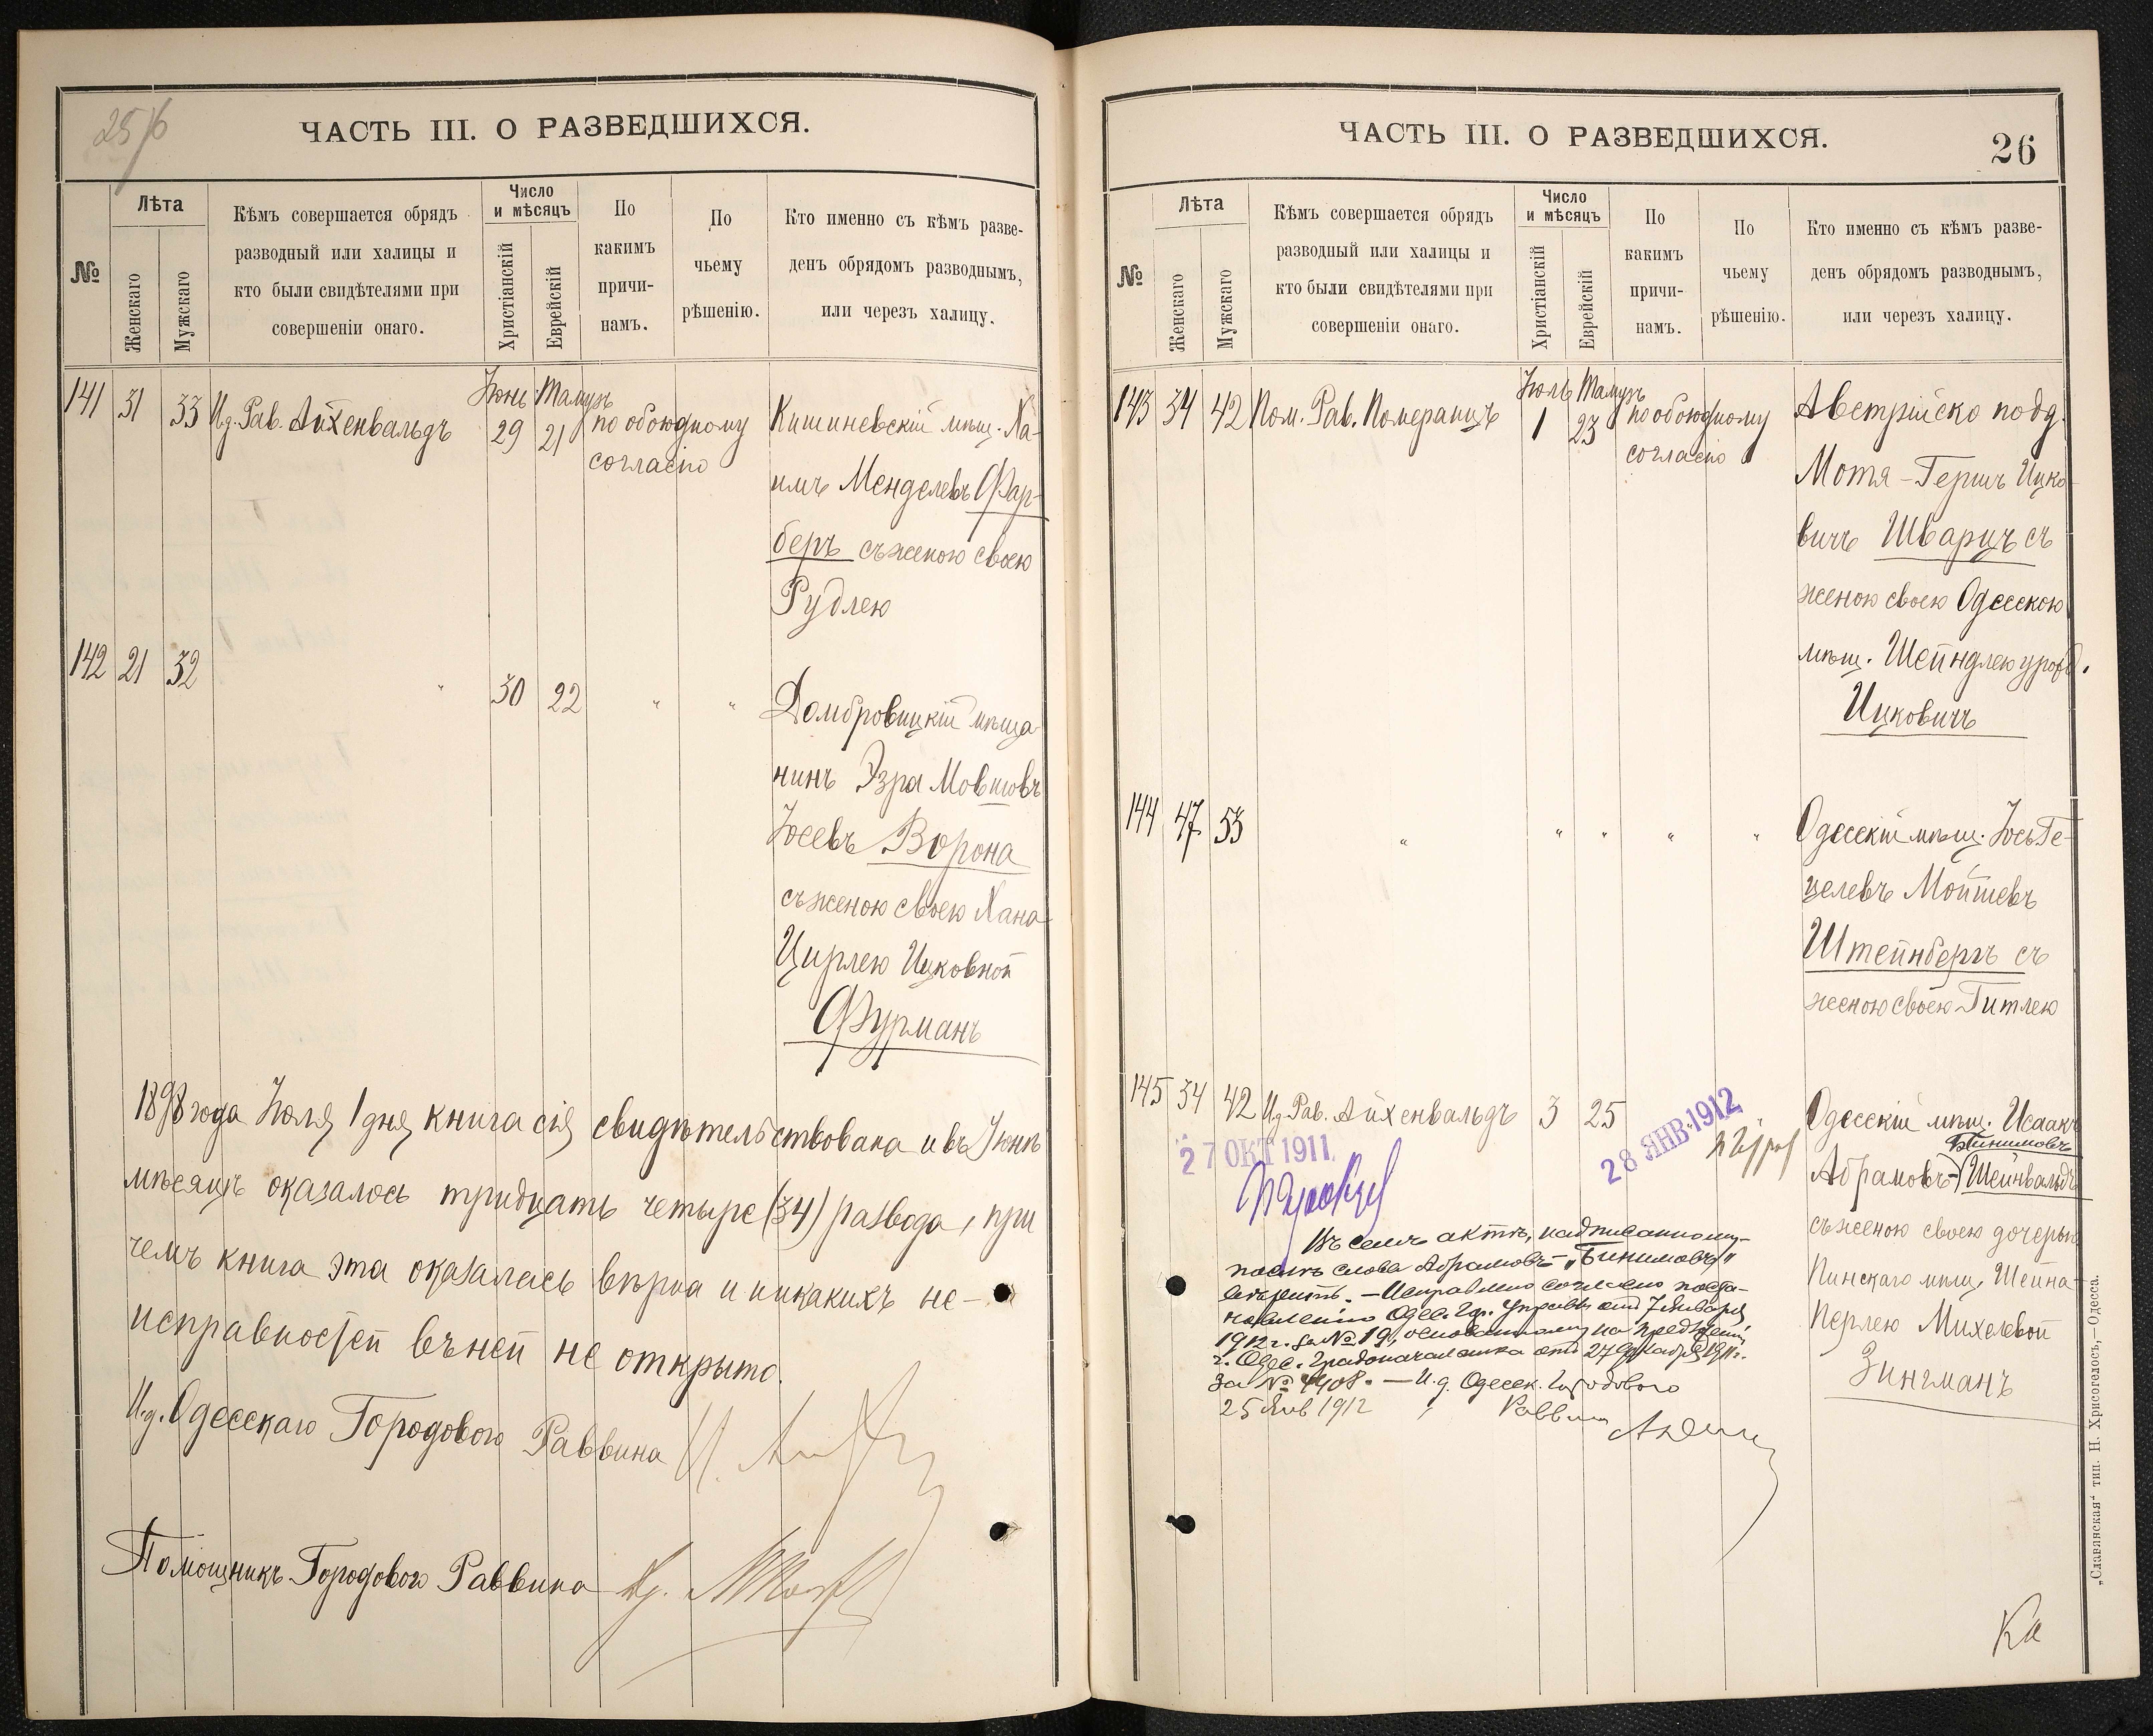 25/6
ЧАСТЬ III. О РАЗВЕДШИХСЯ.
№
Лѣта
Женскаго
Мужскаго
Кѣмъ совершается обрядъ
разводный или халицы и
кто были свидѣтелями при
совершеніи онаго.
Число
и мѣсяцъ
Христіанскій
Еврейскій
По
какимъ
причи-
намъ.
По
чьему
рѣшенію.
Кто именно съ кѣмъ разве-
денъ обрядомъ разводнымъ,
или черезъ халицу.
Іюнь Тамузъ
141 31 33 И.д. Рав. Айхенвальдъ 29 21 по обоюдному
согласію
Кишиневскій мѣщ. Ха-
имъ Менделевъ Фар-
беръ съ женою своею
Рудлею
142 21 32 " 30 22 " "
Домбровицкій мѣща-
нинъ Эзра Мовшовъ
Іосевъ Ворона
съ женою своею Хана-
Цирлею Ицковной
Фурманъ
1898 года Іюля 1 дня книга сія свидѣтельствована и въ Іюнѣ
мѣсяцѣ оказалось тридцать четыре (34) развода, при
чемъ книга эта оказалась вѣрна и никакихъ не-
исправностей въ ней не открыто.
И.д. Одесскаго Городового Раввина
Помощникъ Городового Раввина
ЧАСТЬ III. О РАЗВЕДШИХСЯ.
26
№
Лѣта
Женскаго
Мужскаго
Кѣмъ совершается обрядъ
разводный или халицы и
кто были свидѣтелями при
совершеніи онаго.
Число
и мѣсяцъ
Христіанскій
Еврейскій
По
какимъ
причи-
намъ.
По
чьему
рѣшенію.
Кто именно съ кѣмъ разве-
денъ обрядомъ разводнымъ,
или черезъ халицу.
Іюль Тамузъ
143 34 42 Пом. Рав. Померанцъ 1 23 по обоюдному
согласію
Австрійско подд.
Мотя-Гершъ Ицко-
вичъ Шварцъ съ
женою своею Одесскою
мѣщ. Шейндлею урожд.
Ицковичъ
144 47 53 " " " " "
Одесскій мѣщ. Іось Ге-
целевъ Мойшевъ
Штейнбергъ съ
женою своею Гитлею
145 34 42 И.д. Рав. Айхенвальдъ 3 25
27 ОКТ 1911
28 ЯНВ. 1912
Одесскій мѣщ. Исаакъ
Бинимовъ
Абрамовъ-Шейнвальдъ
съ женою своею дочерью
Пинскаго мѣщ. Шейна-
Перлею Михелевой
Зингманъ
Въ семъ актѣ, надписанному
послѣ слова Абрамовъ - „Бинимовъ"
вѣрить. - Исправлено согласно поста-
новленію Одес. Гор. Управы отъ 7 Января
1912 г. за № 19, основанному на предложеніи
г. Одес. Градоначальника отъ 27 Декабря 1911 г.
за № 4408. - И.д. Одесск. Городового
25 Янв 1912 Раввина
„Славянская" тип. Н. Хрисогелосъ,—Одесса.